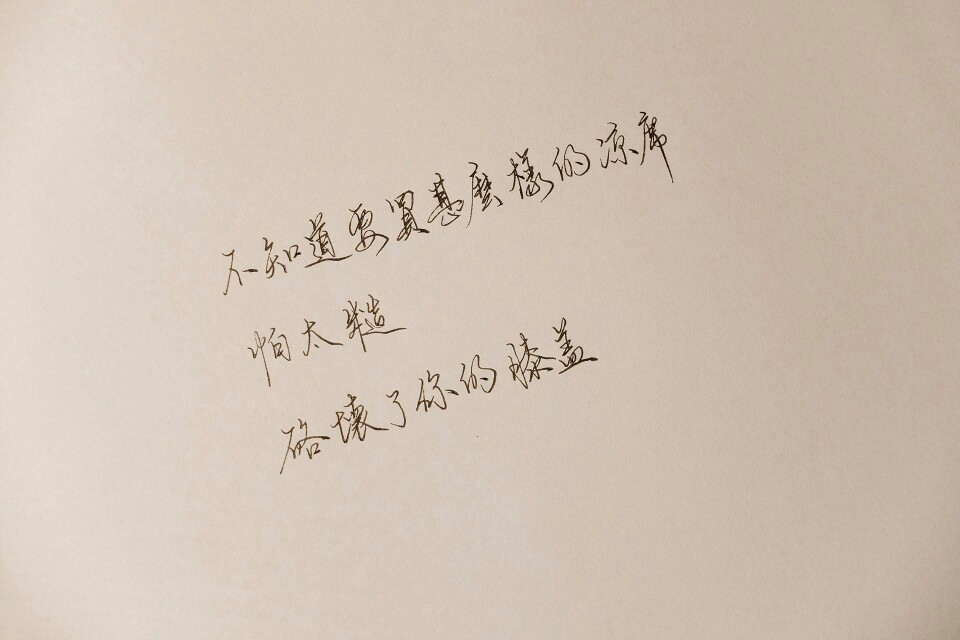 不知道要買甚麼樣的凉席
怕太糙
硌壞了你的膝盖